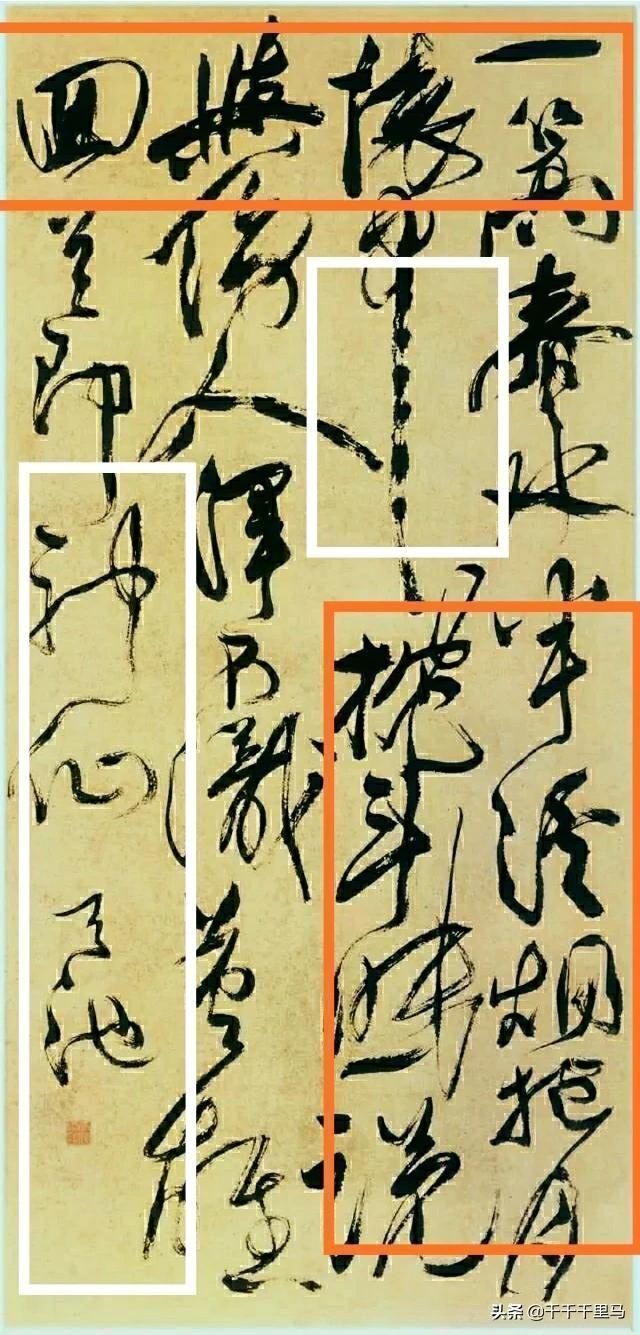 一篙春水半溪烟抱月
懷中枕斗眠說
與傍人渾不識英雄
回首即神仙天池
头条 @千千千里马